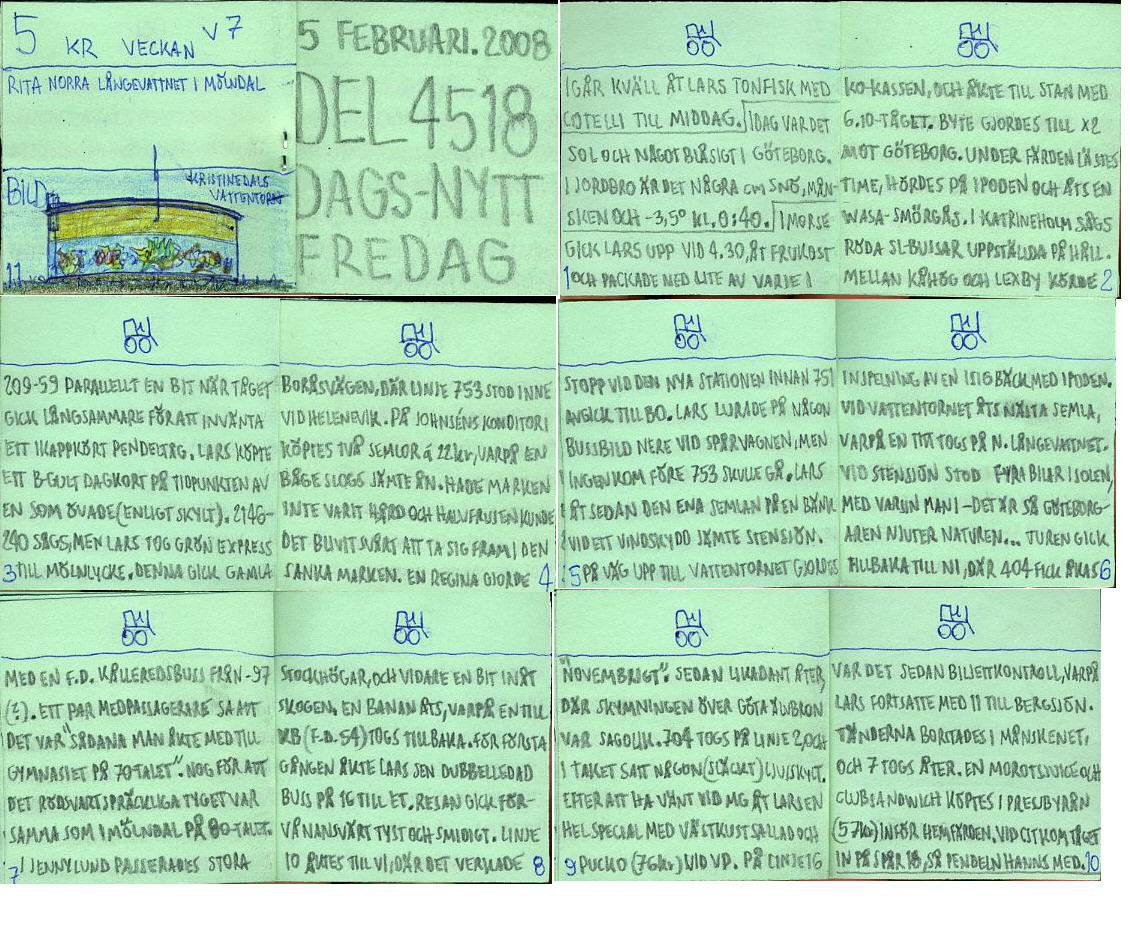 5 KR VECKAN V7
RITA NORRA LÅNGEVATTNET I MÖLNDAL
BILD
KRISTINEDALS
VATTENTORN
11
5 FEBRUARI.2008
DEL 4518
DAGS-NYTT
FREDAG
IGÅR KVÄLL ÅT LARS TONFISK MED
COTELLI TILL MIDDAG. IDAG VAR DET
SOL OCH NÅGOT BLÅSIGT I GÖTEBORG.
I JORDBRO ÄR DET NÅGRA CM SNÖ, MÅN-
SKEN OCH -3,5° KL. 0:40. I MORSE
GICK LARS UPP VID 4.30, ÅT FRUKOST
1 OCH PACKADE NED LITE AV VARJE I
KO-KASSEN, OCH ÅKTE TILL STAN MED
6.10-TÅGET. BYTE GJORDES TILL X2
MOT GÖTEBORG. UNDER FÄRDEN LÄSTES
TIME, HÖRDES PÅ IPODEN OCH ÅTS EN
WASA-SMÖRGÅS. I KATRINEHOLM SÅGS
RÖDA SL-BUSSAR UPPSTÄLLDA PÅ HÅLL.
MELLAN KÅHÖG OCH LEXBY KÖRDE 2
209-59 PARALLELLT EN BIT NÄR TÅGET
GICK LÅNGSAMMARE FÖR ATT INVÄNTA
ETT IKAPPKÖRT PENDELTÅG. LARS KÖPTE
ETT B-GULT DAGKORT PÅ TIDPUNKTEN AV
EN SOM ÖVADE (ENLIGT SKYLT). 2146-
240 SÅGS, MEN LARS TOG GRÖN EXPRESS
3 TILL MÖLNLYCKE. DENNA GICK GAMLA
BORÅSVÄGEN, DÄR LINJE 753 STOD INNE
VID HELENEVIK. PÅ JOHNSÉNS KONDITORI
KÖPTES TVÅ SEMLOR á 22kr, VARPÅ EN
BÅGE SLOGS JÄMTE ÅN. HADE MARKEN
INTE VARIT HÅRD OCH HALVFRUSEN KUNDE
DET BLIVIT SVÅRT ATT TA SIG FRAM I DEN
SANKA MARKEN. EN REGINA GJORDE 4
STOPP VID DEN NYA STATIONEN INNAN 751
AVGICK TILL BO. LARS LURADE PÅ NÅGON
BUSSBILD NERE VID SPÅRVAGNEN, MEN
INGEN KOM FÖRE 753 SKULLE GÅ. LARS
ÅT SEDAN DEN ENA SEMLAN PÅ EN BÄNK
VID ETT VINDSKYDD JÄMTE STENSJÖN.
5 PÅ VÄG UPP TILL VATTENTORNET GJORDES
INSPELNING AV EN ISIG BÄCK MED IPODEN.
VID VATTENTORNET ÅTS NÄSTA SEMLA,
VARPÅ EN TITT TOGS PÅ N. LÅNGEVATTNET.
VID STENSJÖN STOD FYRA BILAR I SOLEN,
MED VARSIN MAN I - DET ÄR SÅ GÖTEBORG-
AREN NJUTER NATUREN... TUREN GICK
TILLBAKA TILL NI, DÄR 404 FICK ÅKAS 6
MED EN F.D. KÅLLEREDSBUSS FRÅN -97
(?). ETT PAR MEDPASSAGERARE SA ATT
DET VAR "SÅDANA MAN ÅKTE MED TILL
GYMNASIET PÅ 70-TALET". NOG FÖR ATT
DET RÖDSVARTSPRÄCKLIGA TYGET VAR
SAMMA SOM I MÖLNDAL PÅ 80-TALET.
7 I JENNYLUND PASSERADES STORA
STOCKHÖGAR, OCH VIDARE EN BIT INÅT
SKOGEN. EN BANAN ÅTS, VARPÅ EN TILL
KB (F.D. 54) TOGS TILLBAKA. FÖR FÖRSTA
GÅNGEN ÅKTE LARS SEN DUBBELLEDAD
BUSS PÅ 16 TILL ET. RESAN GICK FÖR-
VÅNANSVÄRT TYST OCH SMIDIGT. LINJE
10 ÅKTES TILL VI, DÄR DET VERKADE 8
"NOVEMBRIGT". SEDAN LIKADANT ÅTER,
DÄR SKYMNINGEN ÖVER GÖTAÄLVBRON
VAR SAGOLIK. 704 TOGS PÅ LINJE 2, OCH
I TAKET SATT NÅGON (SLÄCKT) LJUSSKYLT.
EFTER ATT HA VÄNT VID MG ÅT LARS EN
HEL SPECIAL MED VÄSTKUSTSALLAD OCH
9 PUCKO (76kr) VID VP. PÅ LINJE 16
VAR DET SEDAN BILJETTKONTROLL, VARPÅ
LARS FORTSATTE MED 11 TILL BERGSJÖN.
TÄNDERNA BORSTADES I MÅNSKENET,
OCH 7 TOGS ÅTER. EN MOROTSJUICE OCH
CLUBSANDWICH KÖPTES I PRESSBYRÅN
(57kr) INFÖR HEMFÄRDEN. VID CST KOM TÅGET
IN PÅ SPÅR 18, SÅ PENDELN HANNS MED. 10